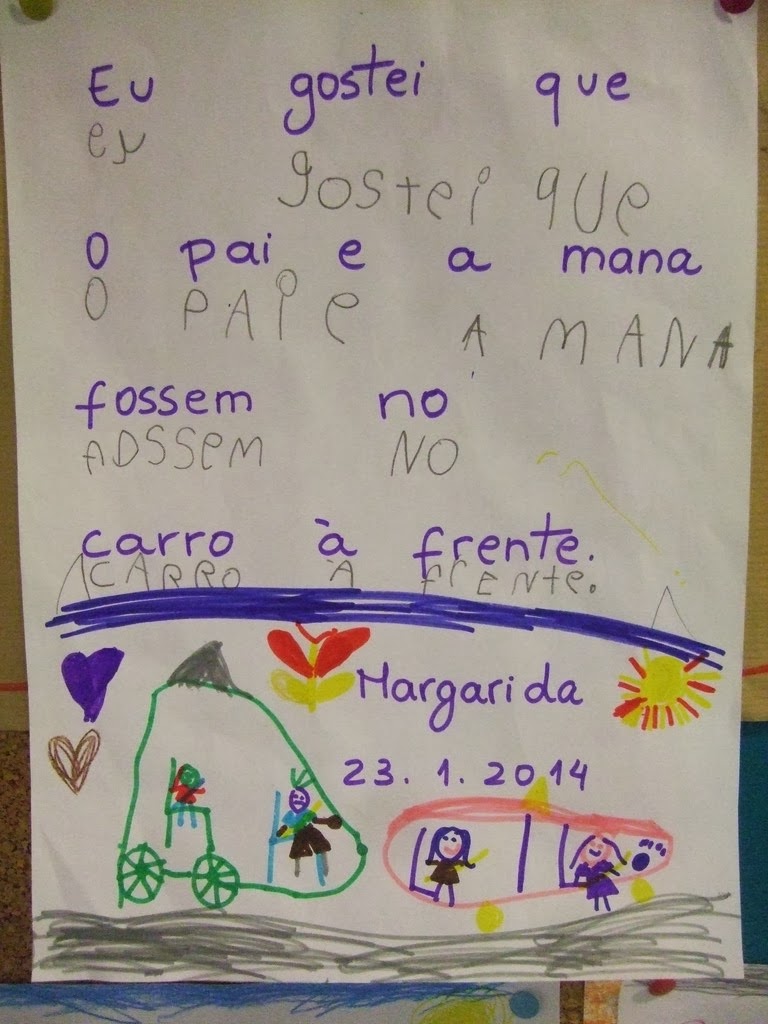 Eu gostei que
eu gostei que
O pai e a mana
O PAi e A MANA
fossem no
ADSSeM NO
carro à frente.
CARRO A FRENte.
Margarida
23.1.2014